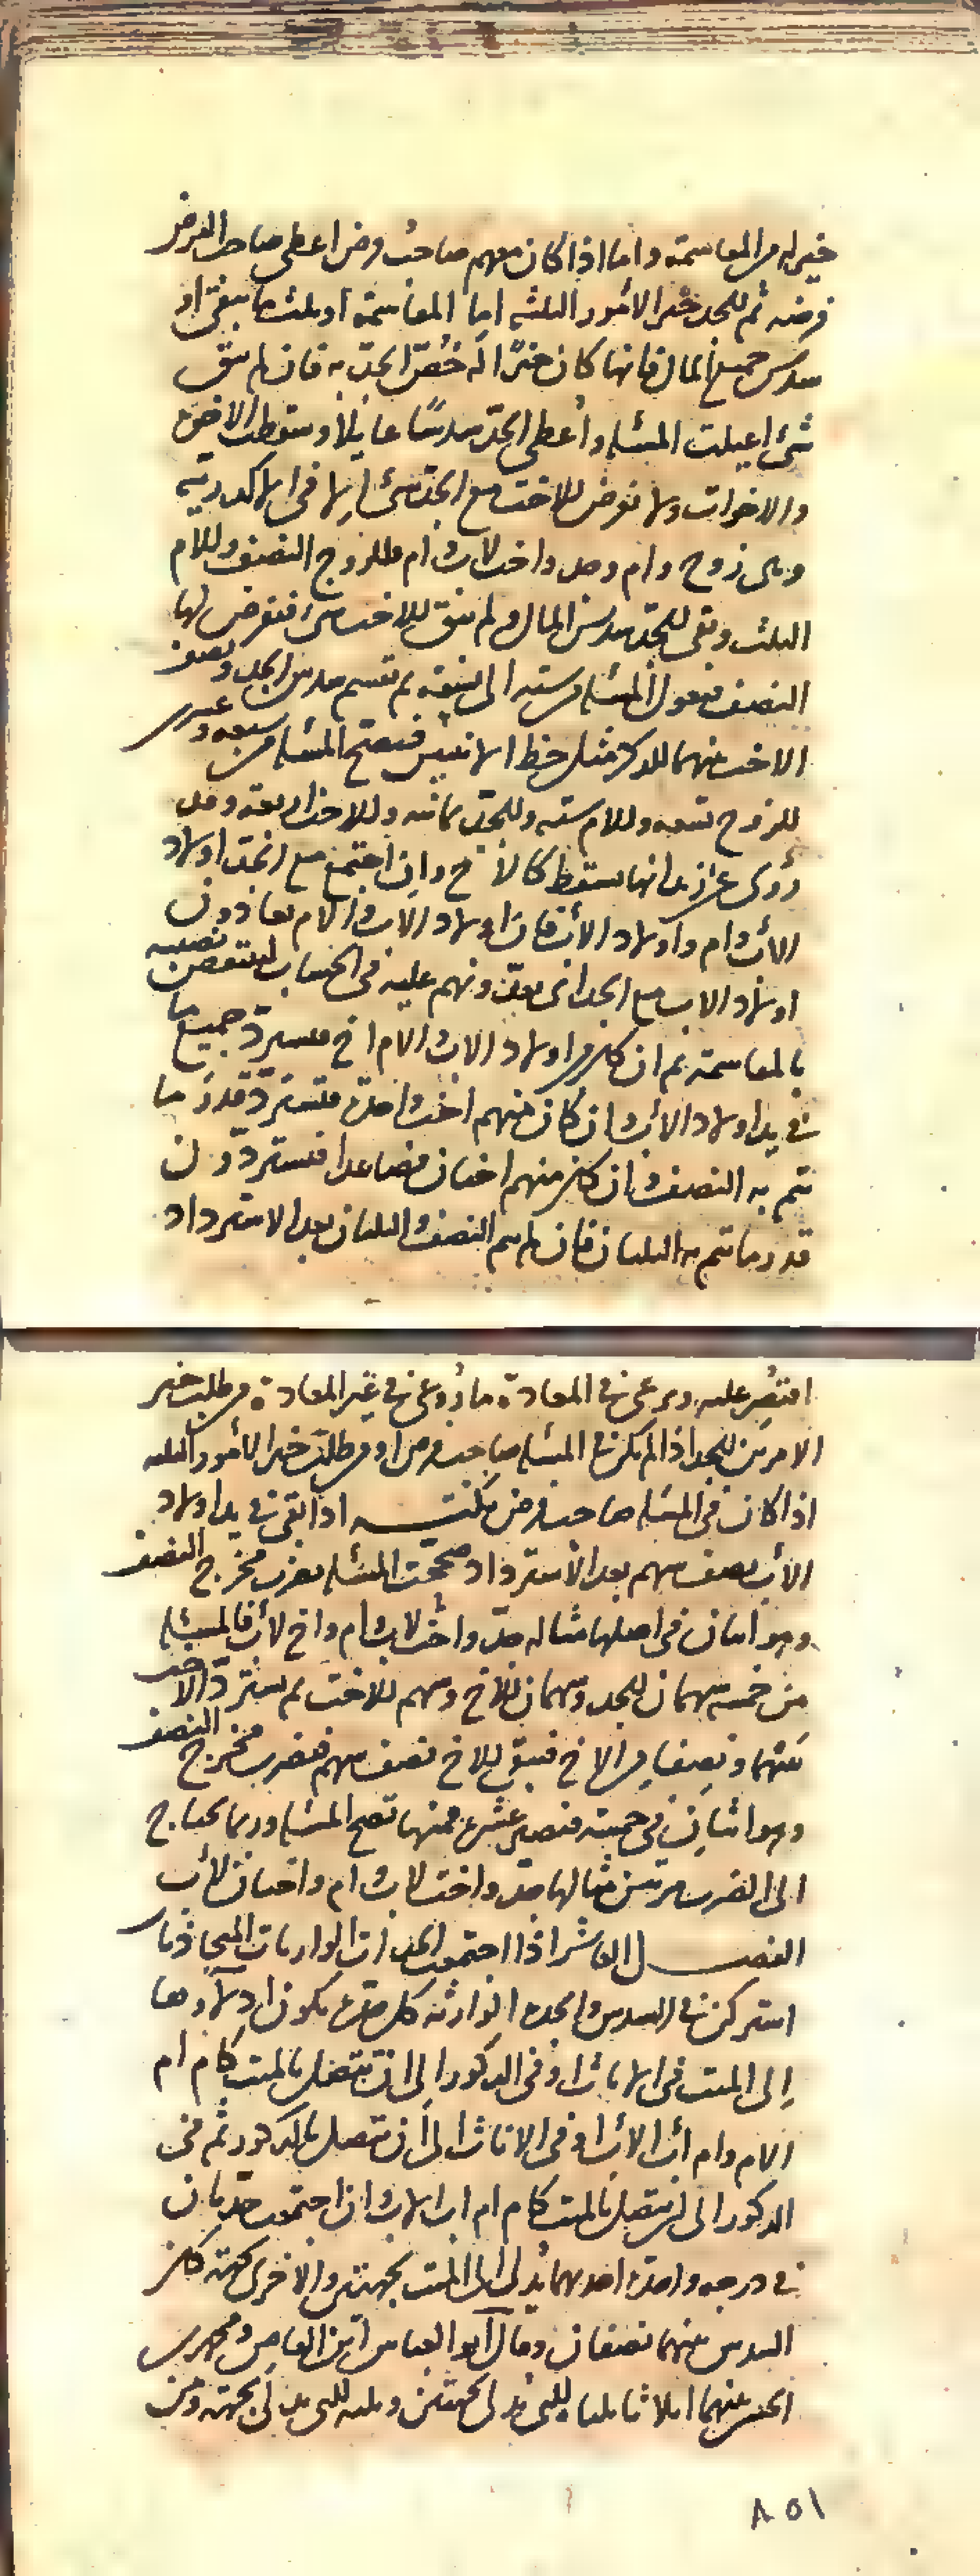 خير له من المقاسمة واما اذا كان معهم صاحب فرض اعطى صاحب الفرض
فرضه ثم للجد خير الامور الثلثه اما المقاسمة او ثلث ما يبقى او
سدس جميع المال فايها كان خيرًا له خُصّ الجدّ به فان لم يبق
شئ اعيلت المسئلة واُعطى الجدّ سدسًا عايلًا وسقطت الاخوة
والاخوات ولا يفرض للاخت مع الجد شئ الا فى الاكدرية
وهى زوج وام وجد واخت لاب وام فللزوج النصف وللام
الثلث وبقى للجدّ سدس المال ولم يبق للاخت شئ فيفرض لها
النصف فتعول المسئلة من ستة الى تسعة ثم تقسم سدس الجد ونصف
الاخت بينهما للذكر مثل حظ الانثيين فتصح المسئلة من سبعة وعشرين
للزوج تسعه وللام سته وللجدّ ثمانيه وللاخت اربعة وقد
رُوى عن زيد انها تسقط كالاخ وان اجتمع مع الجد اولاد
الاب وام واولاد الاب فان اولاد الاب والام يعادون
اولاد الاب مع الجد اى يعدّونهم عليه فى الحساب لينتقص نصيبه
بالمقاسمة ثم ان كان من اولاد الاب والام اخ فيستردّ جميع ما
فى يد اولاد الاب وان كان منهم اخت واحدة فتستردّ قدر ما
تتم به النصف وان كان منهم اختان فصاعدا فتستردّون
قدر ما تتم به الثلثان فان لم يتم النصف والثلثان بعد الاسترداد
اقتُصر عليه ويرعى فى المعادة ما رُوعى فى غير المعادة من طلب خير
الامرين للجد اذا لم يكن فى المسئلة صاحب فرض او من طلب خير الامور الثلثه
اذا كان فى المسئلة صاحب فرض نكتــه اذا بقى فى يد اولاد
الاب نصف سهم بعد الاسترداد صحّحت المسئلة بضرب مخرج النصف
وهو اثنان فى اصلها مثاله جدّ واخت لاب وام واخ لاب فالمسئلة
من خمسه سهمان للجد وسهمان للاخ وسهم للاخت ثم تستردّ الاخت
سهمًا ونصفا من الاخ فيبقى للاخ نصف سهم فتضرب مخرج النصف
وهو اثنان فى خمسة فتصير عشرة فمنها تصح المسئلة وربما يحتاج
الى الضرب مرتين مثالها جدّ واخت لاب وام واختان لاب
الفصــل العاشر اذا اجتمعت الجدات الوارثات المتحاذيات
اشتركن فى السدس والجدة الوارثه كل جدة يكون ادلاؤها
الى الميت فى الاناث او فى الذكور الى ان تتصل بالميت كام ام
الام وام اب الاب او فى الاناث الى ان تتصل بالذكور ثم فى
الذكور الى ان تتصل بالميت كام ام اب الاب وان اجتمعت جدّتان
فى درجه واحدة احديهما يدلى الى الميت بجهتين والاخرى بجهة كان
السدس بينهما نصفان وقال ابو العباس ابن القاص ومحمد بن
الحسن بينهما اثلاثا ثلثاه للتى تدلى بجهتين وثلثه للتى تدلى بجهة ومن
٨٥١